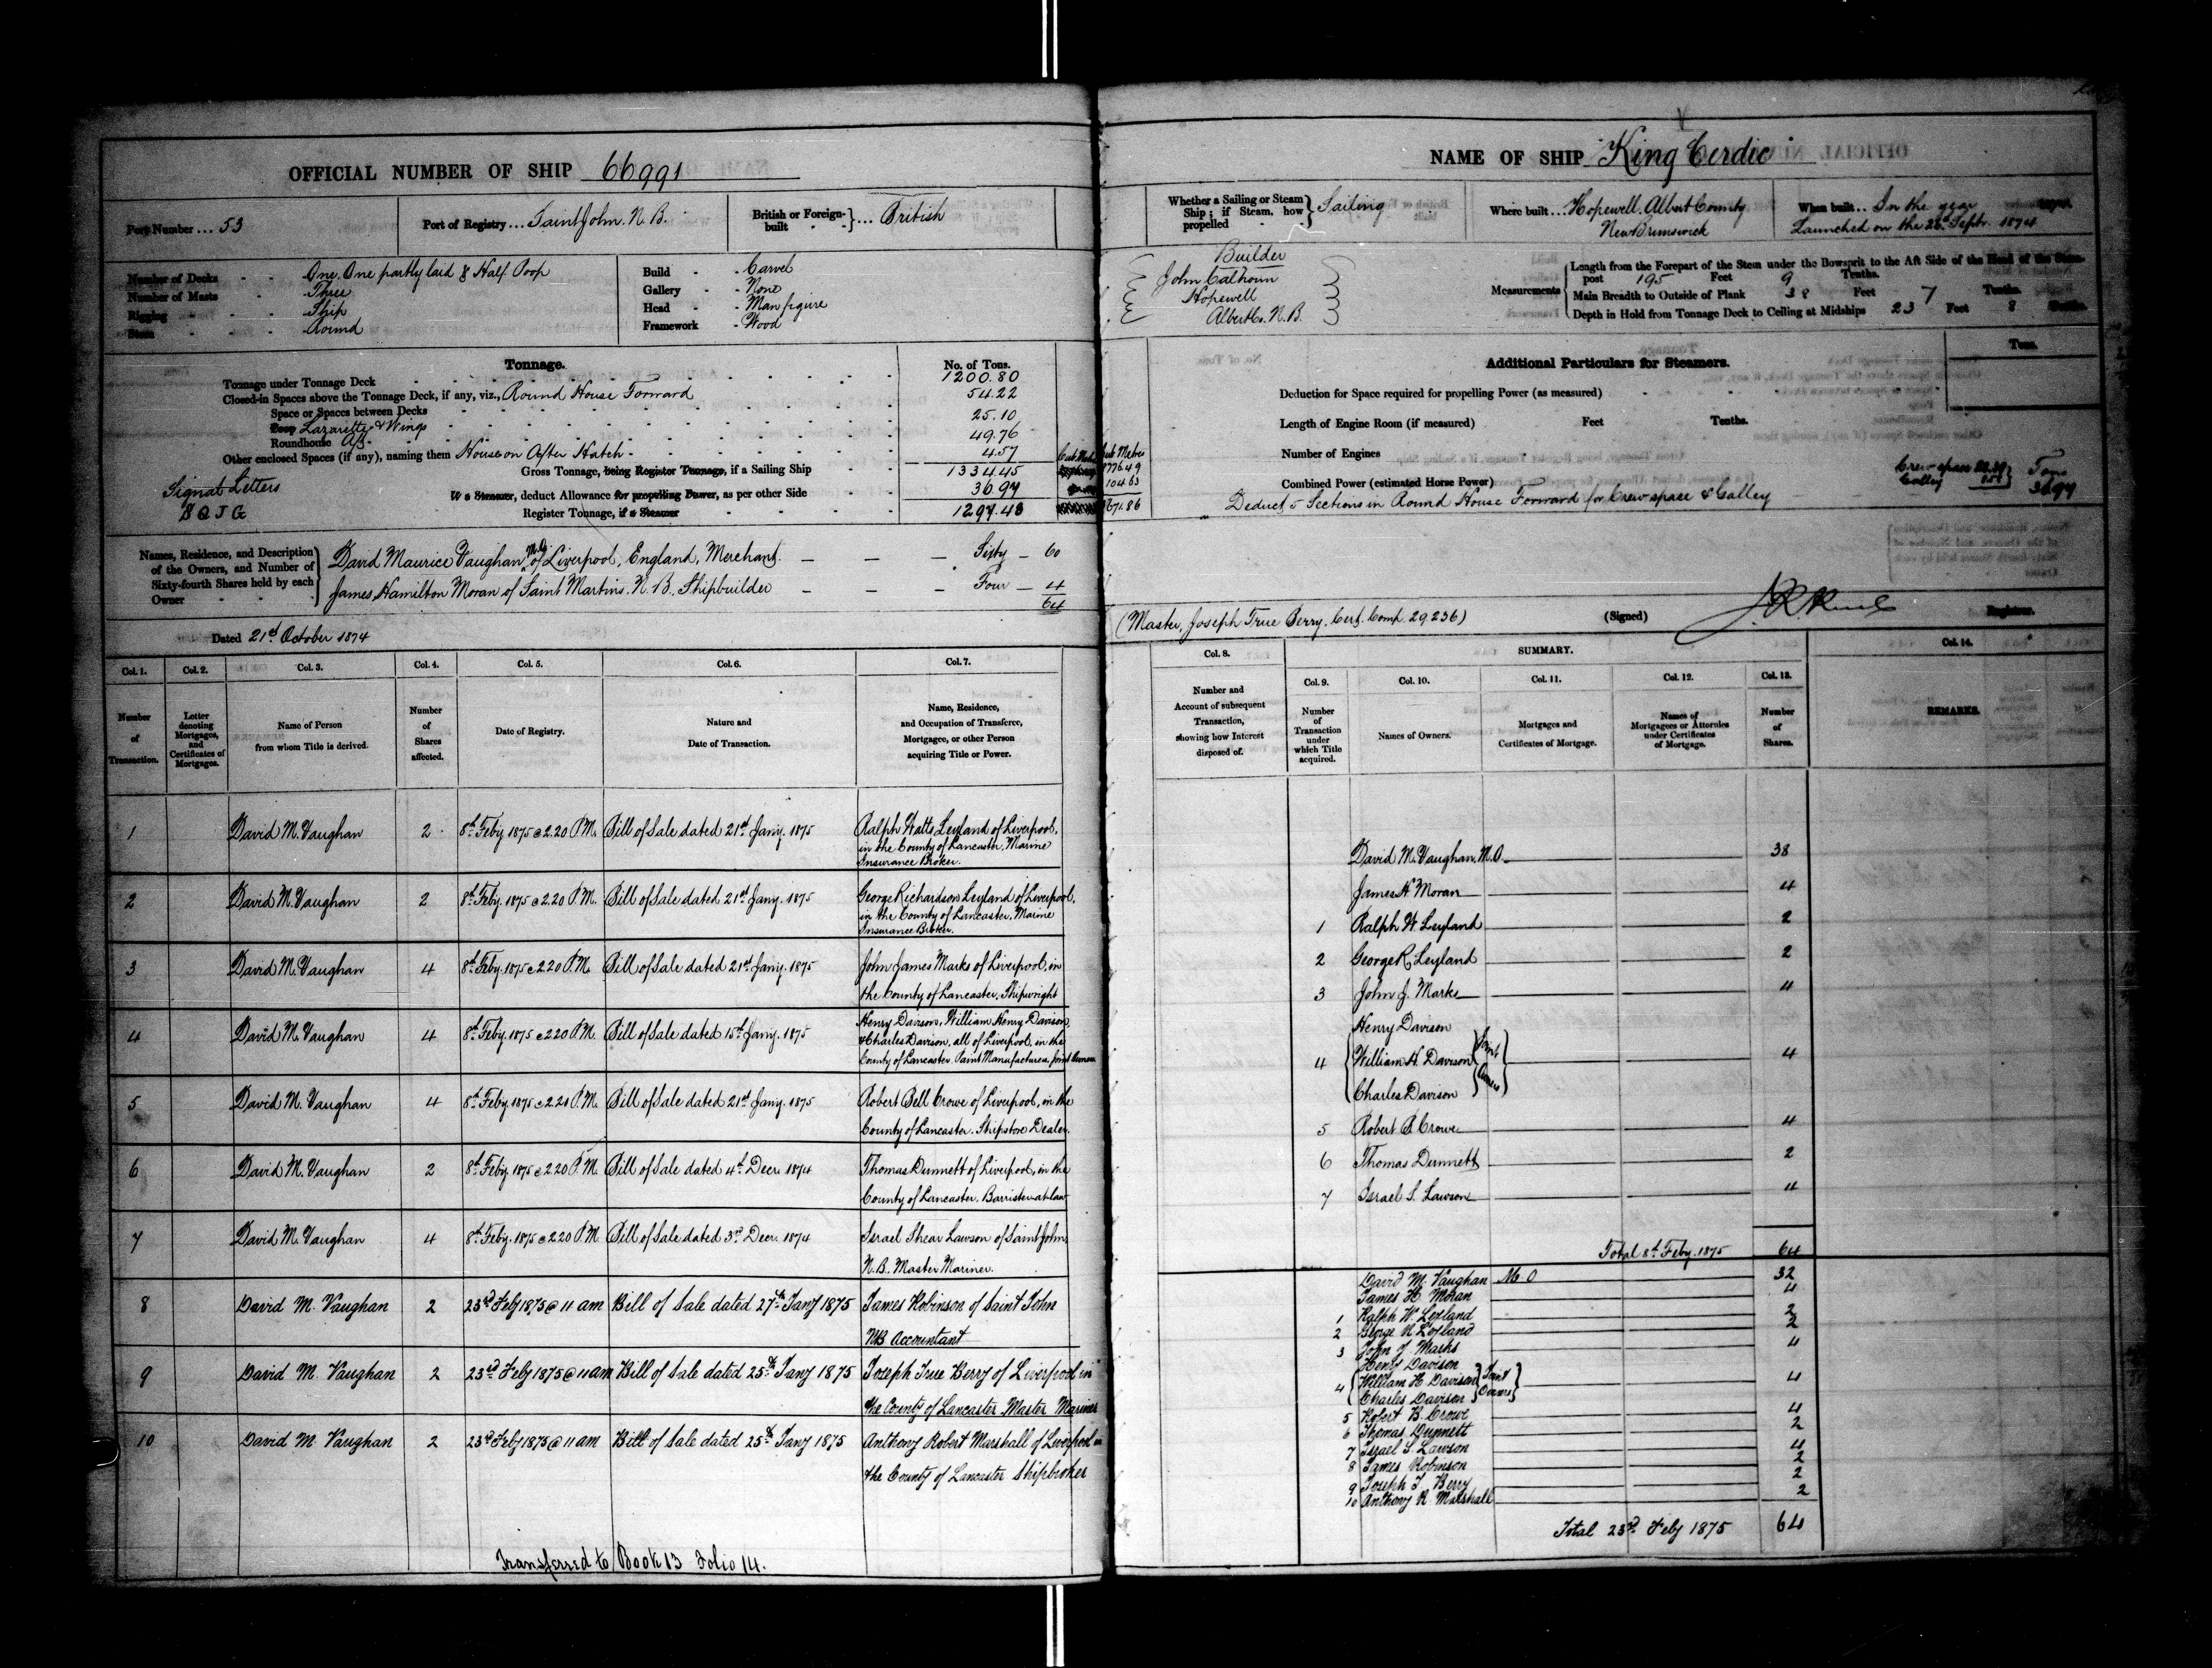 OFFICIAL NUMBER OF SHIP 66991
Port Number ... 53
Port of Registry ... Saint John. N. B.
British or Foreign-built } ... British
Number of Decks - - One. One partly laid & Half Poop
Number of Masts - - Three
Rigging - - Ship
Stem - - Round
Build - - Carvel
Gallery - - None
Head - - Man figure
Framework - Wood
Tonnage.
No. of Tons.
Tonnage under Tonnage Deck 1200.80
Closed-in Spaces above the Tonnage Deck, if any, viz., Round House Forward 54.22
Space or Spaces between Decks
Poop Lazarette & Wings 25.10
Roundhouse Aft 49.76
Other enclosed Spaces (if any), naming them House on After Hatch 4.57
Gross Tonnage, being Register Tonnage, if a Sailing Ship 1334.45
If a Steamer, deduct Allowance for propelling Power, as per other Side 36.97
Register Tonnage, if a Steamer 1297.48
Signal Letters
Cub Metres
1776.49
104.63
1671.86
Names, Residence, and Description of the Owners, and Number of Sixty-fourth Shares held by each Owner
David Maurice Vaughan, M.O. of Liverpool, England, Merchant. — — — Sixty — 60
James Hamilton Moran of Saint Martins. N. B., Shipbuilder — — — Four — 4
64
Dated 21st October 1874
Col. 1. Col. 2. Col. 3. Col. 4. Col. 5. Col. 6. Col. 7.
Number of Transaction.
Letter denoting Mortgages, and Certificates of Mortgages.
Name of Person from whom Title is derived.
Number of Shares affected.
Date of Registry.
Nature and Date of Transaction.
Name, Residence, and Occupation of Transferee, Mortgagee, or other Person acquiring Title or Power.
1 David M. Vaughan 2 8th Feby 1875 @ 2.20 P.M. Bill of Sale dated 21st Jany. 1875 Ralph Watts Leyland of Liverpool, in the County of Lancaster, Marine Insurance Broker.
2 David M. Vaughan 2 8th Feby. 1875 @ 2.20 P.M. Bill of Sale dated 21st Jany. 1875 George Richardson Leyland of Liverpool, in the County of Lancaster, Marine Insurance Broker.
3 David M. Vaughan 4 8th Feby. 1875 @ 2.20 P.M. Bill of Sale dated 21st Jany. 1875 John James Marks of Liverpool, in the County of Lancaster, Shipwright
4 David M. Vaughan 4 8th Feby. 1875 @ 2.20 P.M. Bill of Sale dated 15th Jany. 1875 Henry Davison, William Henry Davison, & Charles Davison, all of Liverpool, in the County of Lancaster Paint Manufacturers, Joint Owners
5 David M. Vaughan 4 8th Feby 1875 @ 2.20 P.M. Bill of Sale dated 21st Jany. 1875 Robert Bell Crowe of Liverpool, in the County of Lancaster. Shipstore Dealer.
6 David M. Vaughan 2 8th Feby 1875 @ 2.20 P.M. Bill of Sale dated 4th Decr. 1874 Thomas Dunnett of Liverpool, in the County of Lancaster, Barrister at law
7 David M. Vaughan 4 8th Feby. 1875 @ 2.20 P.M. Bill of Sale dated 3rd Decr. 1874 Israel Shear Lawson of Saint John, N.B. Master Mariner.
8 David M. Vaughan 2 23rd Feby 1875 @ 11 am Bill of Sale dated 27th Jany 1875 James Robinson of Saint John NB Accountant
9 David M. Vaughan 2 23rd Feby 1875 @ 11 am Bill of Sale dated 25th Jany 1875 Joseph True Berry of Liverpool in the County of Lancaster Master Mariner
10 David M Vaughan 2 23rd Feby 1875 @ 11 am Bill of Sale dated 25th Jany 1875 Anthony Robert Marshall of Liverpool in the County of Lancaster Shipbroker
Transferred to Book 13 Folio 14.
NAME OF SHIP King Cerdic
Whether a Sailing or Steam Ship; if Steam, how propelled } Sailing
Where built ... Hopewell. Albert County New Brunswick
When built .. In the year
Launched on the 26th Septr. 1874
Builder
John Calhoun
Hopewell
Albert Co. N. B.
Measurements
Length from the Forepart of the Stem under the Bowsprit to the Aft Side of the Head of the Stern post 195 Feet 9 Tenths.
Main Breadth to Outside of Plank 38 Feet 7 Tenths.
Depth in Hold from Tonnage Deck to Ceiling at Midships 23 Feet 8 Tenths.
Additional Particulars for Steamers.
Tons.
Deduction for Space required for propelling Power (as measured)
Length of Engine Room (if measured) Feet Tenths.
Number of Engines
Combined Power (estimated Horse Power)
Crew space
Galley
Tons
36.97
Deduct 5 Sections in Round House Forward for Crew space & Galley
(Master, Joseph True Berry. Cert. Comp. 29,236)
(Signed)
Registrar.
Col. 8. SUMMARY. Col. 14.
Col. 9. Col. 10. Col. 11. Col. 12. Col. 13.
Number and Account of subsequent Transaction, showing how Interest disposed of.
Number of Transaction under which Title acquired.
Names of Owners.
Mortgages and Certificates of Mortgage.
Names of Mortgagees or Attornies under Certificates of Mortgage.
Number of Shares.
REMARKS.
David M. Vaughan. M.O. 38
James H Moran 4
1 Ralph W. Leyland 2
2 George R Leyland 2
3 John J. Marks 4
Henry Davison
4 William H. Davison Joint Owners 4
Charles Davison
5 Robert B Crowe 4
6 Thomas Dunnett 2
7 Israel S. Lawson 4
Total 8th Feby. 1875 64
David M. Vaughan M.O 32
James H. Moran 4
1 Ralph W. Leyland 2
2 George R Leyland 2
3 John J. Marks 4
Henry Davison
4 William H Davison Joint Owners 4
Charles Davison
5 Robert B. Crowe 4
6 Thomas Dunnett 2
7 Israel S. Lawson 4
8 James Robinson 2
9 Joseph T Berry 2
10 Anthony R. Marshall 2
Total 23rd Feby 1875 64